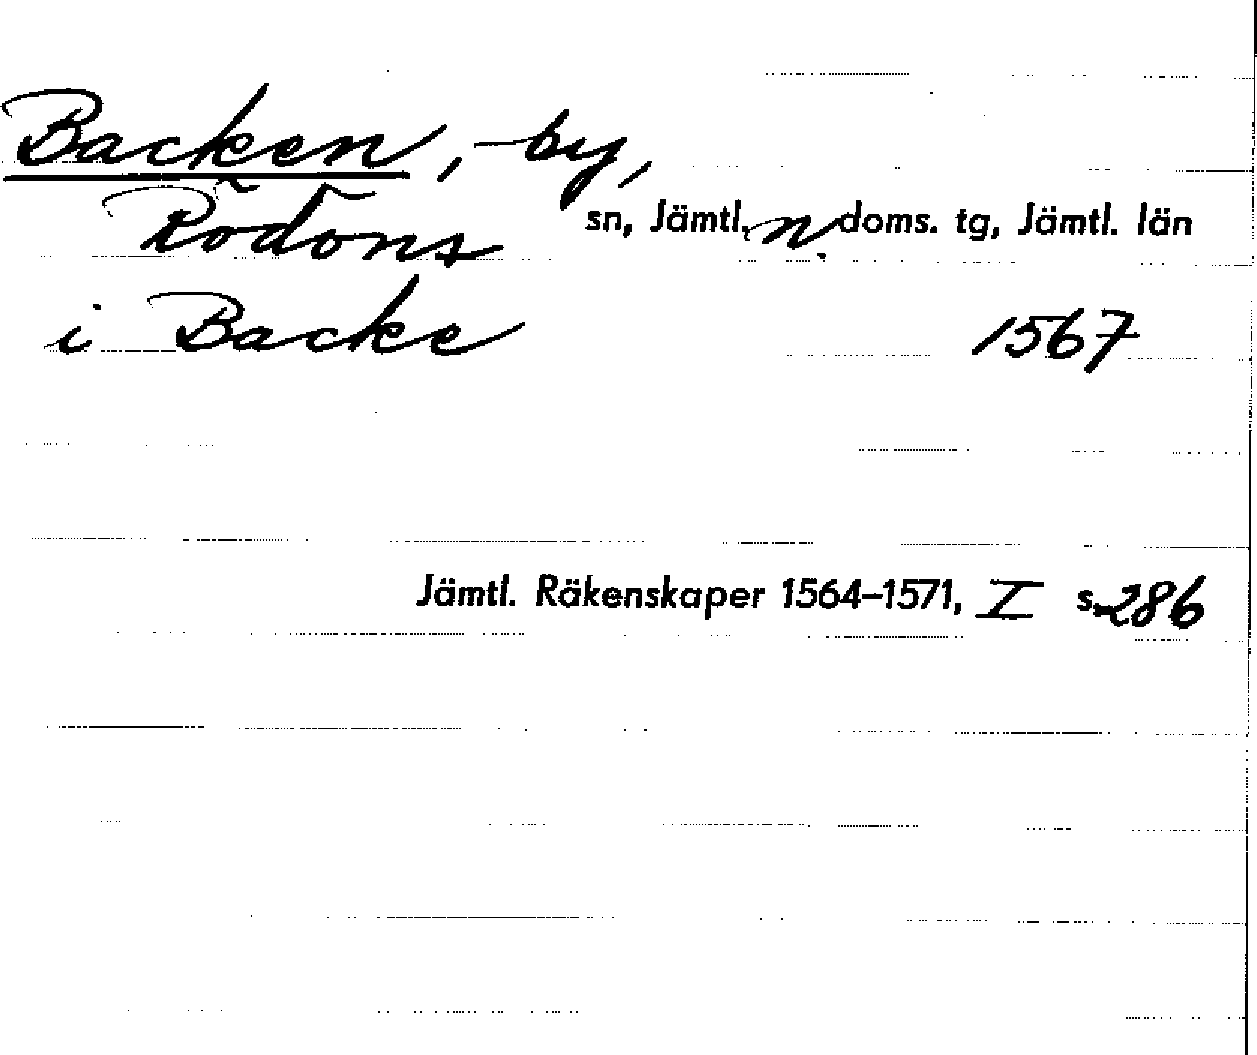 Backen, by,
Rödöns sn, Jämtl. n. doms. tg, Jämtl. län
i Backe 1567
Jämtl. Räkenskaper 1564–1571, I s. 286